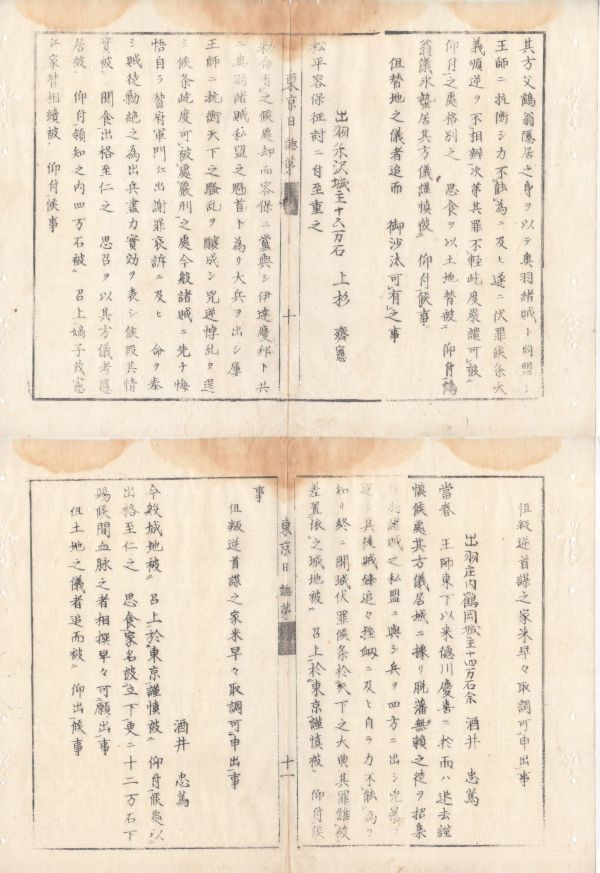 其方父鶴翁隠居之身ヲ以テ奥羽諸賊ト同盟シ
王師ニ抗衝シ力不能為ニ及ヒ遂ニ伏罪候条大
義順逆ヲ不相辨次第其罪不軽屹度厳譴可被
仰付之處格別之 思食ヲ以土地替被 仰付鶴
翁儀永蟄居其方儀謹慎被 仰付候事
但替地之儀者追而 御沙汰可有之事
出羽米沢城主十八万石 上杉 齊憲
松平容保征討ニ付至重之
東京日誌第
十
勅命有之候處却而容保ニ黨與シ伊達慶邦ト共
ニ奥羽諸賊私盟之魁首ト為リ大兵ヲ出シ屡
王師ニ抗衝天下之騒乱ヲ醸成シ兇逆悖乱タ逞
シ候条屹度可被處嚴刑之處今般諸賊ニ先チ悔
悟自ラ督府軍門江出謝罪哀訴ニ及ヒ 命ヲ奉
シ賊徒勦絶之為出兵盡力實効ヲ表シ候段其情
實被 聞食出格至仁之 思召ヲ以其方儀者隠
居被 仰付領知之内四万石被 召上嫡子茂憲
江家督相續被 仰付候事
但叛逆首謀之家来早々取調可申出事
出羽庄内鶴岡城主十四万石余 酒井 忠篤
當春 王師東下以来徳川慶喜ニ於而ハ退去謹
慎候處其方儀居城ニ據リ脱藩無頼之徒ヲ招集
諸賊之私盟ニ與シ兵ヲ四方ニ出シ兇暴ヲ
其後賊鋒追々挫衂ニ及ヒ自ラ力不能為ヲ
知リ終ニ開城伏罪候条於天下之大典其罪難被
差置依之城地被 召上於東京謹慎被 仰付候
東京日誌第
十一
事
但叛逆首謀之家来早々取調可申出事
酒井 忠篤
今般城地被 召上於東京謹慎被 仰付候處以
出格至仁之 思食家名被立下更ニ十二万石下
賜候間血脉之者相撰早々可願出事
但土地之儀者追而被 仰出候事